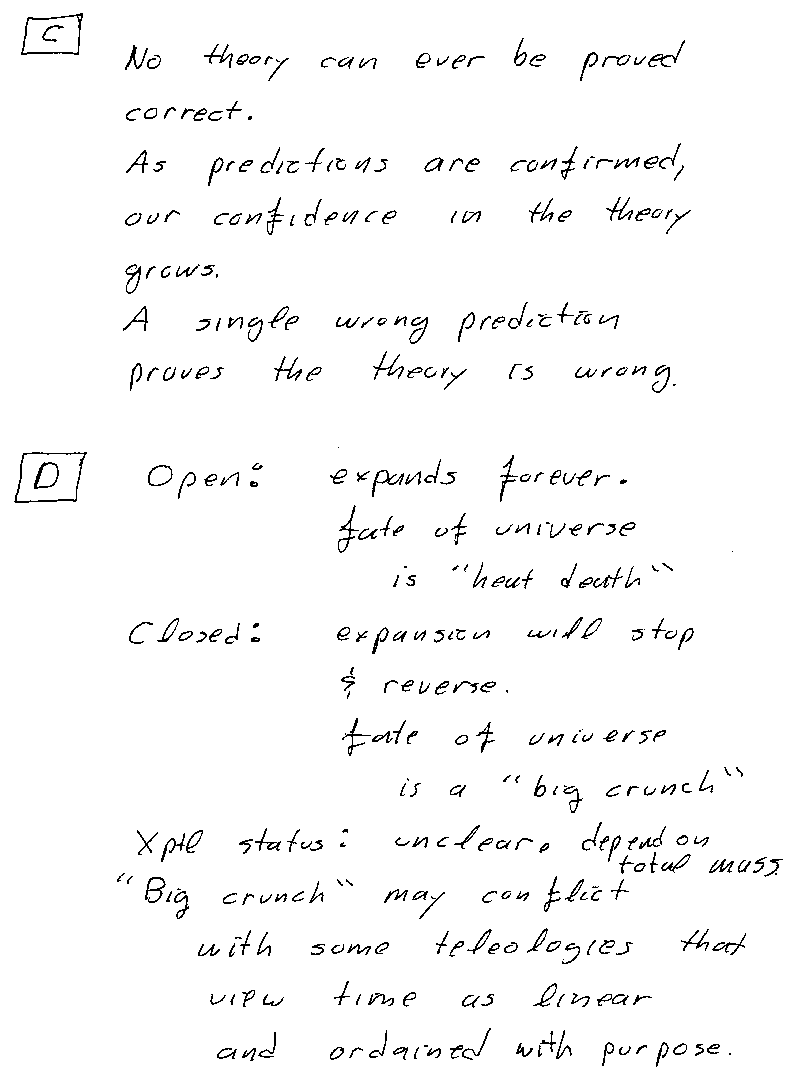 C
No theory can ever be proved
correct.
As predictions are confirmed,
our confidence in the theory
grows.
A single wrong prediction
proves the theory is wrong.
D Open: expands forever.
fate of universe
is "heat death"
Closed: expansion will stop
& reverse.
fate of universe
is a "big crunch"
Xptl status: unclear. depend on
total mass.
"Big crunch" may conflict
with some teleologies that
view time as linear
and ordained with purpose.